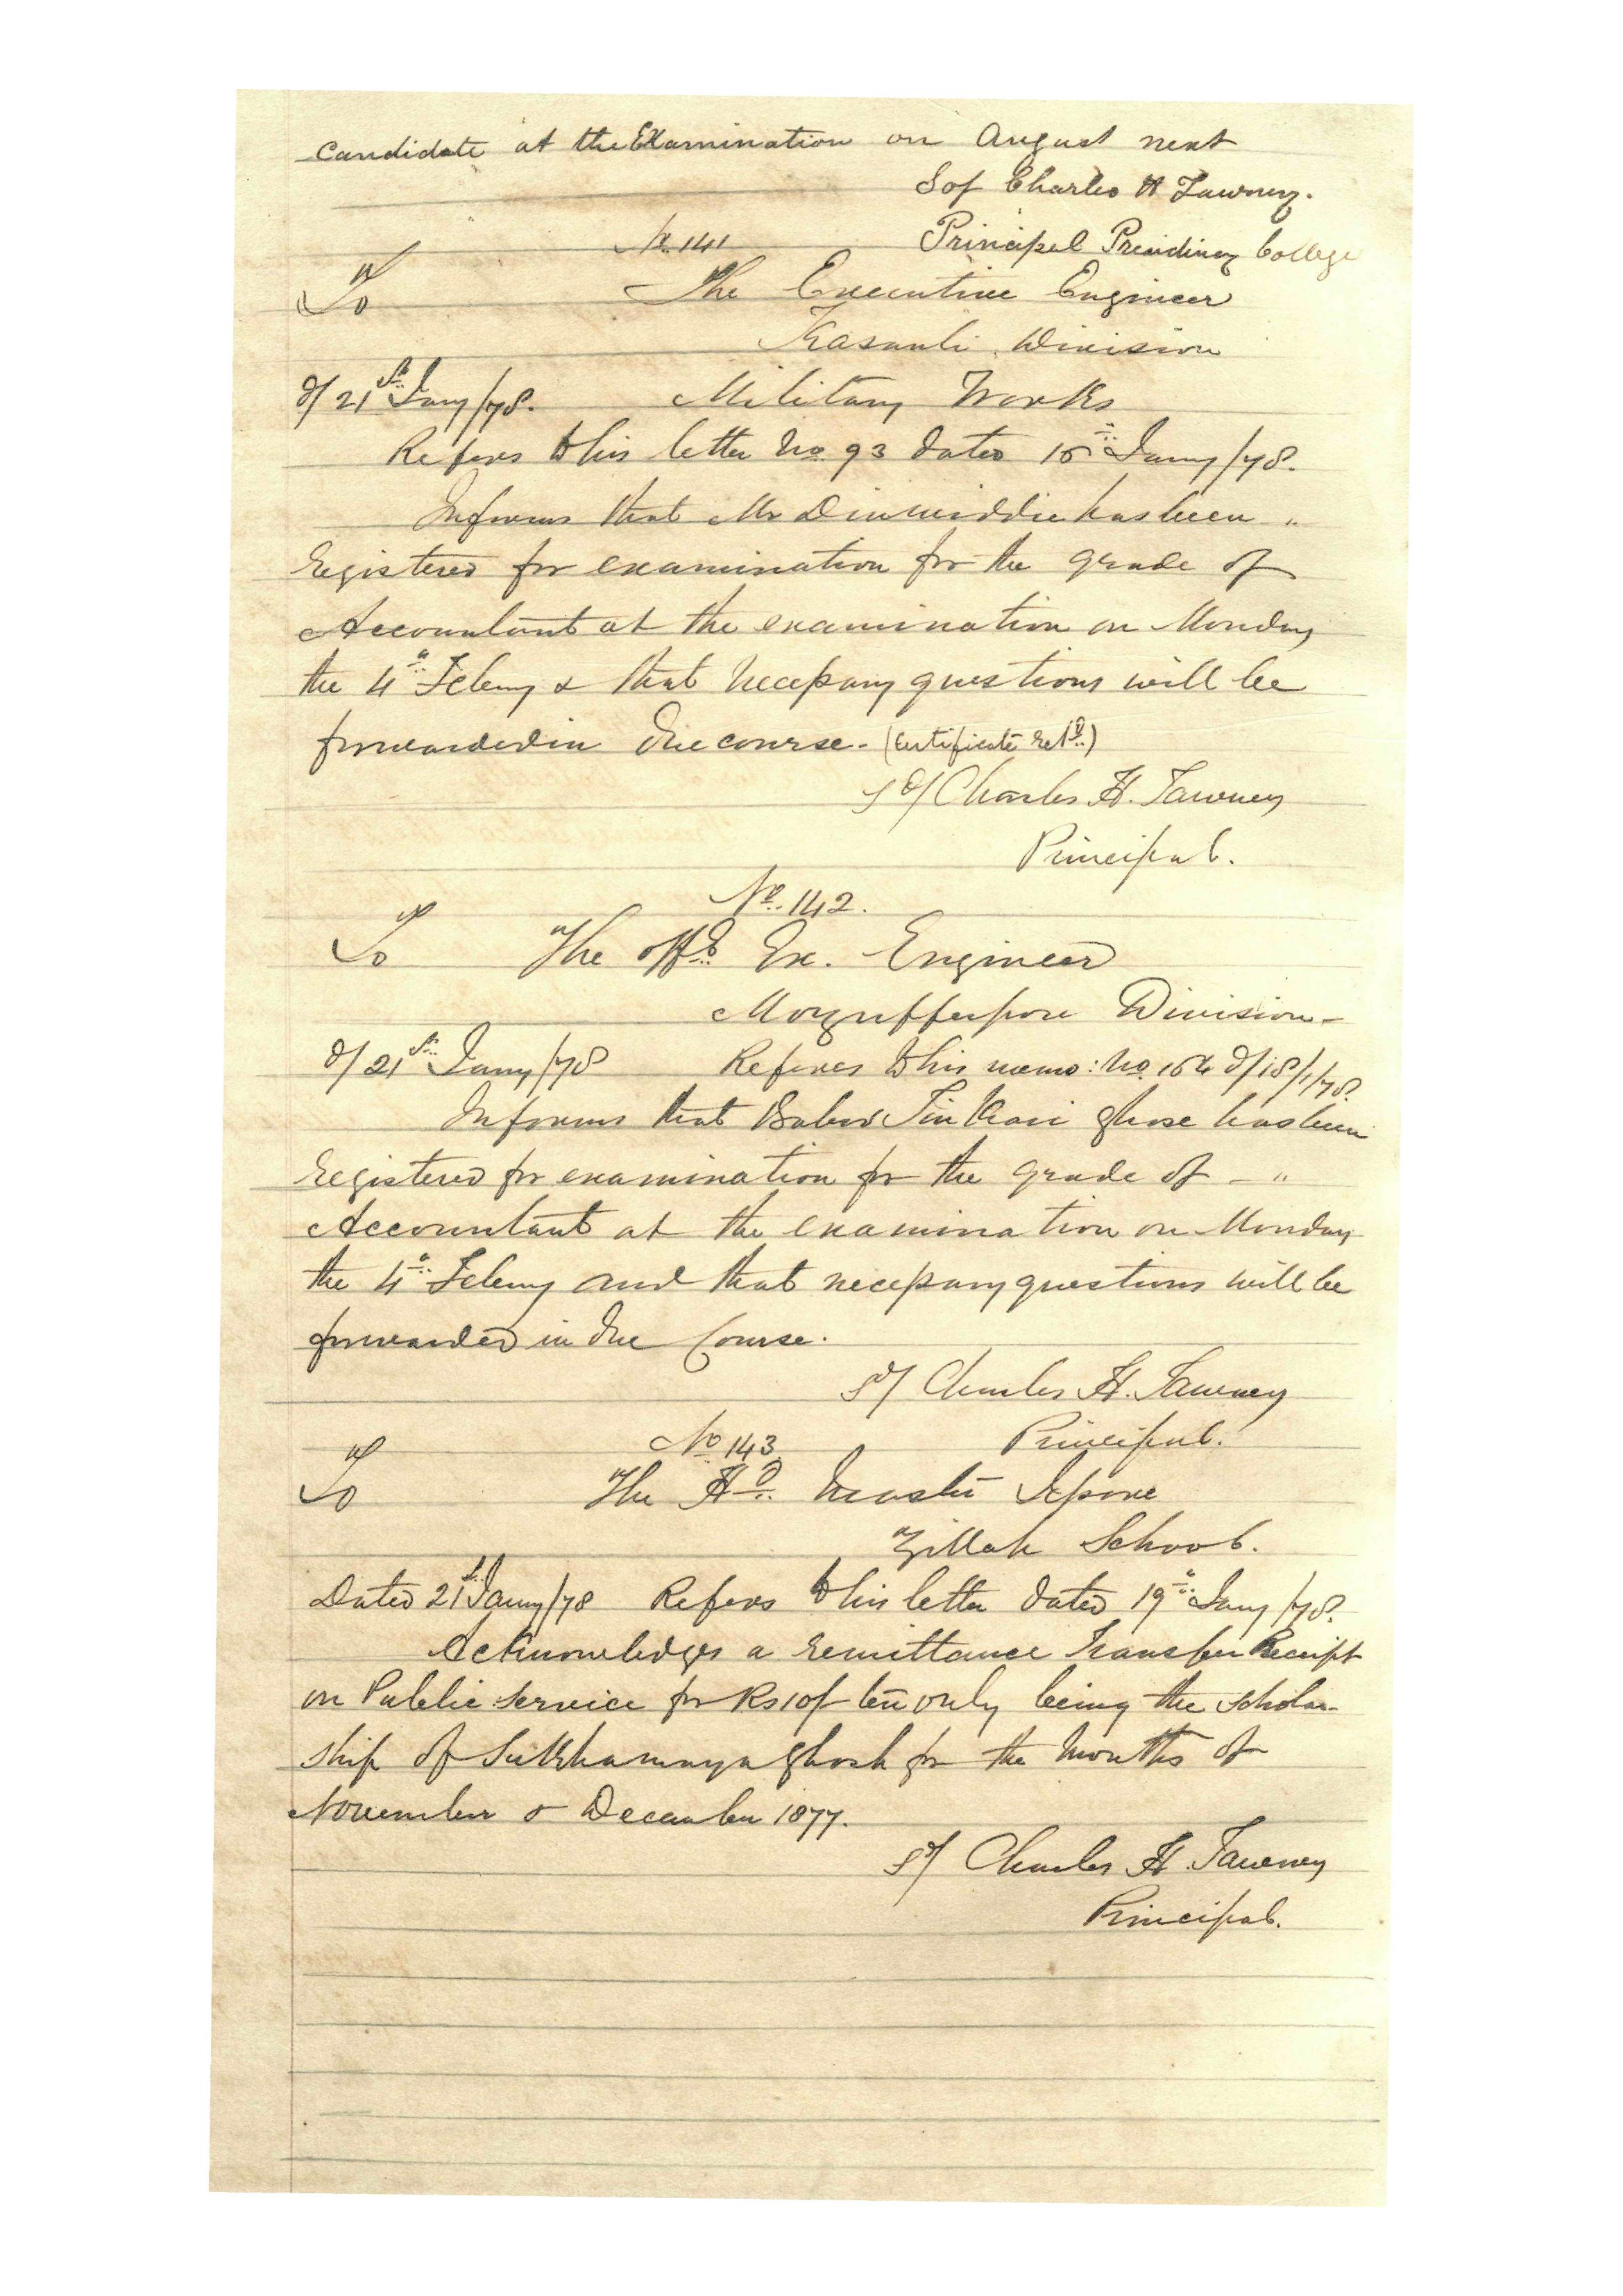 candidate at the Examination on August next
Sd/ Charles H Tawney.
No. 141 Principal Presidency College
To The Executive Engineer
Kasauli Division
d/ 21st Jany/78. Military Works
Refers to his letter No 93 dated 15th Jany/78.
Informs that Mr Dinwiddie has been "
registered for examination for the grade of
Accountant at the examination on Monday
the 4th Febuy & that necessary questions will be
forwarded in due course. (Certificate retd.)
Sd/ Charles H. Tawney
Principal.
No. 142.
To The Offg. Ex. Engineer
Mozufferpore Division-
d/ 21st Jany/78 Refers to his memo: No. 154 d/18/1/78.
Informs that Baboo Tin Kari Ghose has been
registered for examination for the grade of - "
Accountant at the examination on Monday
the 4th Febuy and that necessary questions will be
forwarded in due Course.
Sd/ Charles H. Tawney
No 143 Principal.
To The Hd. Master
Zillah School.
Dated 21st Jany/78 Refers to his letter dated 19th Jany/78.
Acknowledges a remittance Transfer Receipt
on Public Service for Rs 10/- ten only being the Scholar-
ship of Sukhamaya Ghosh for the months of
November & December 1877.
Sd/ Charles H. Tawney
Principal.